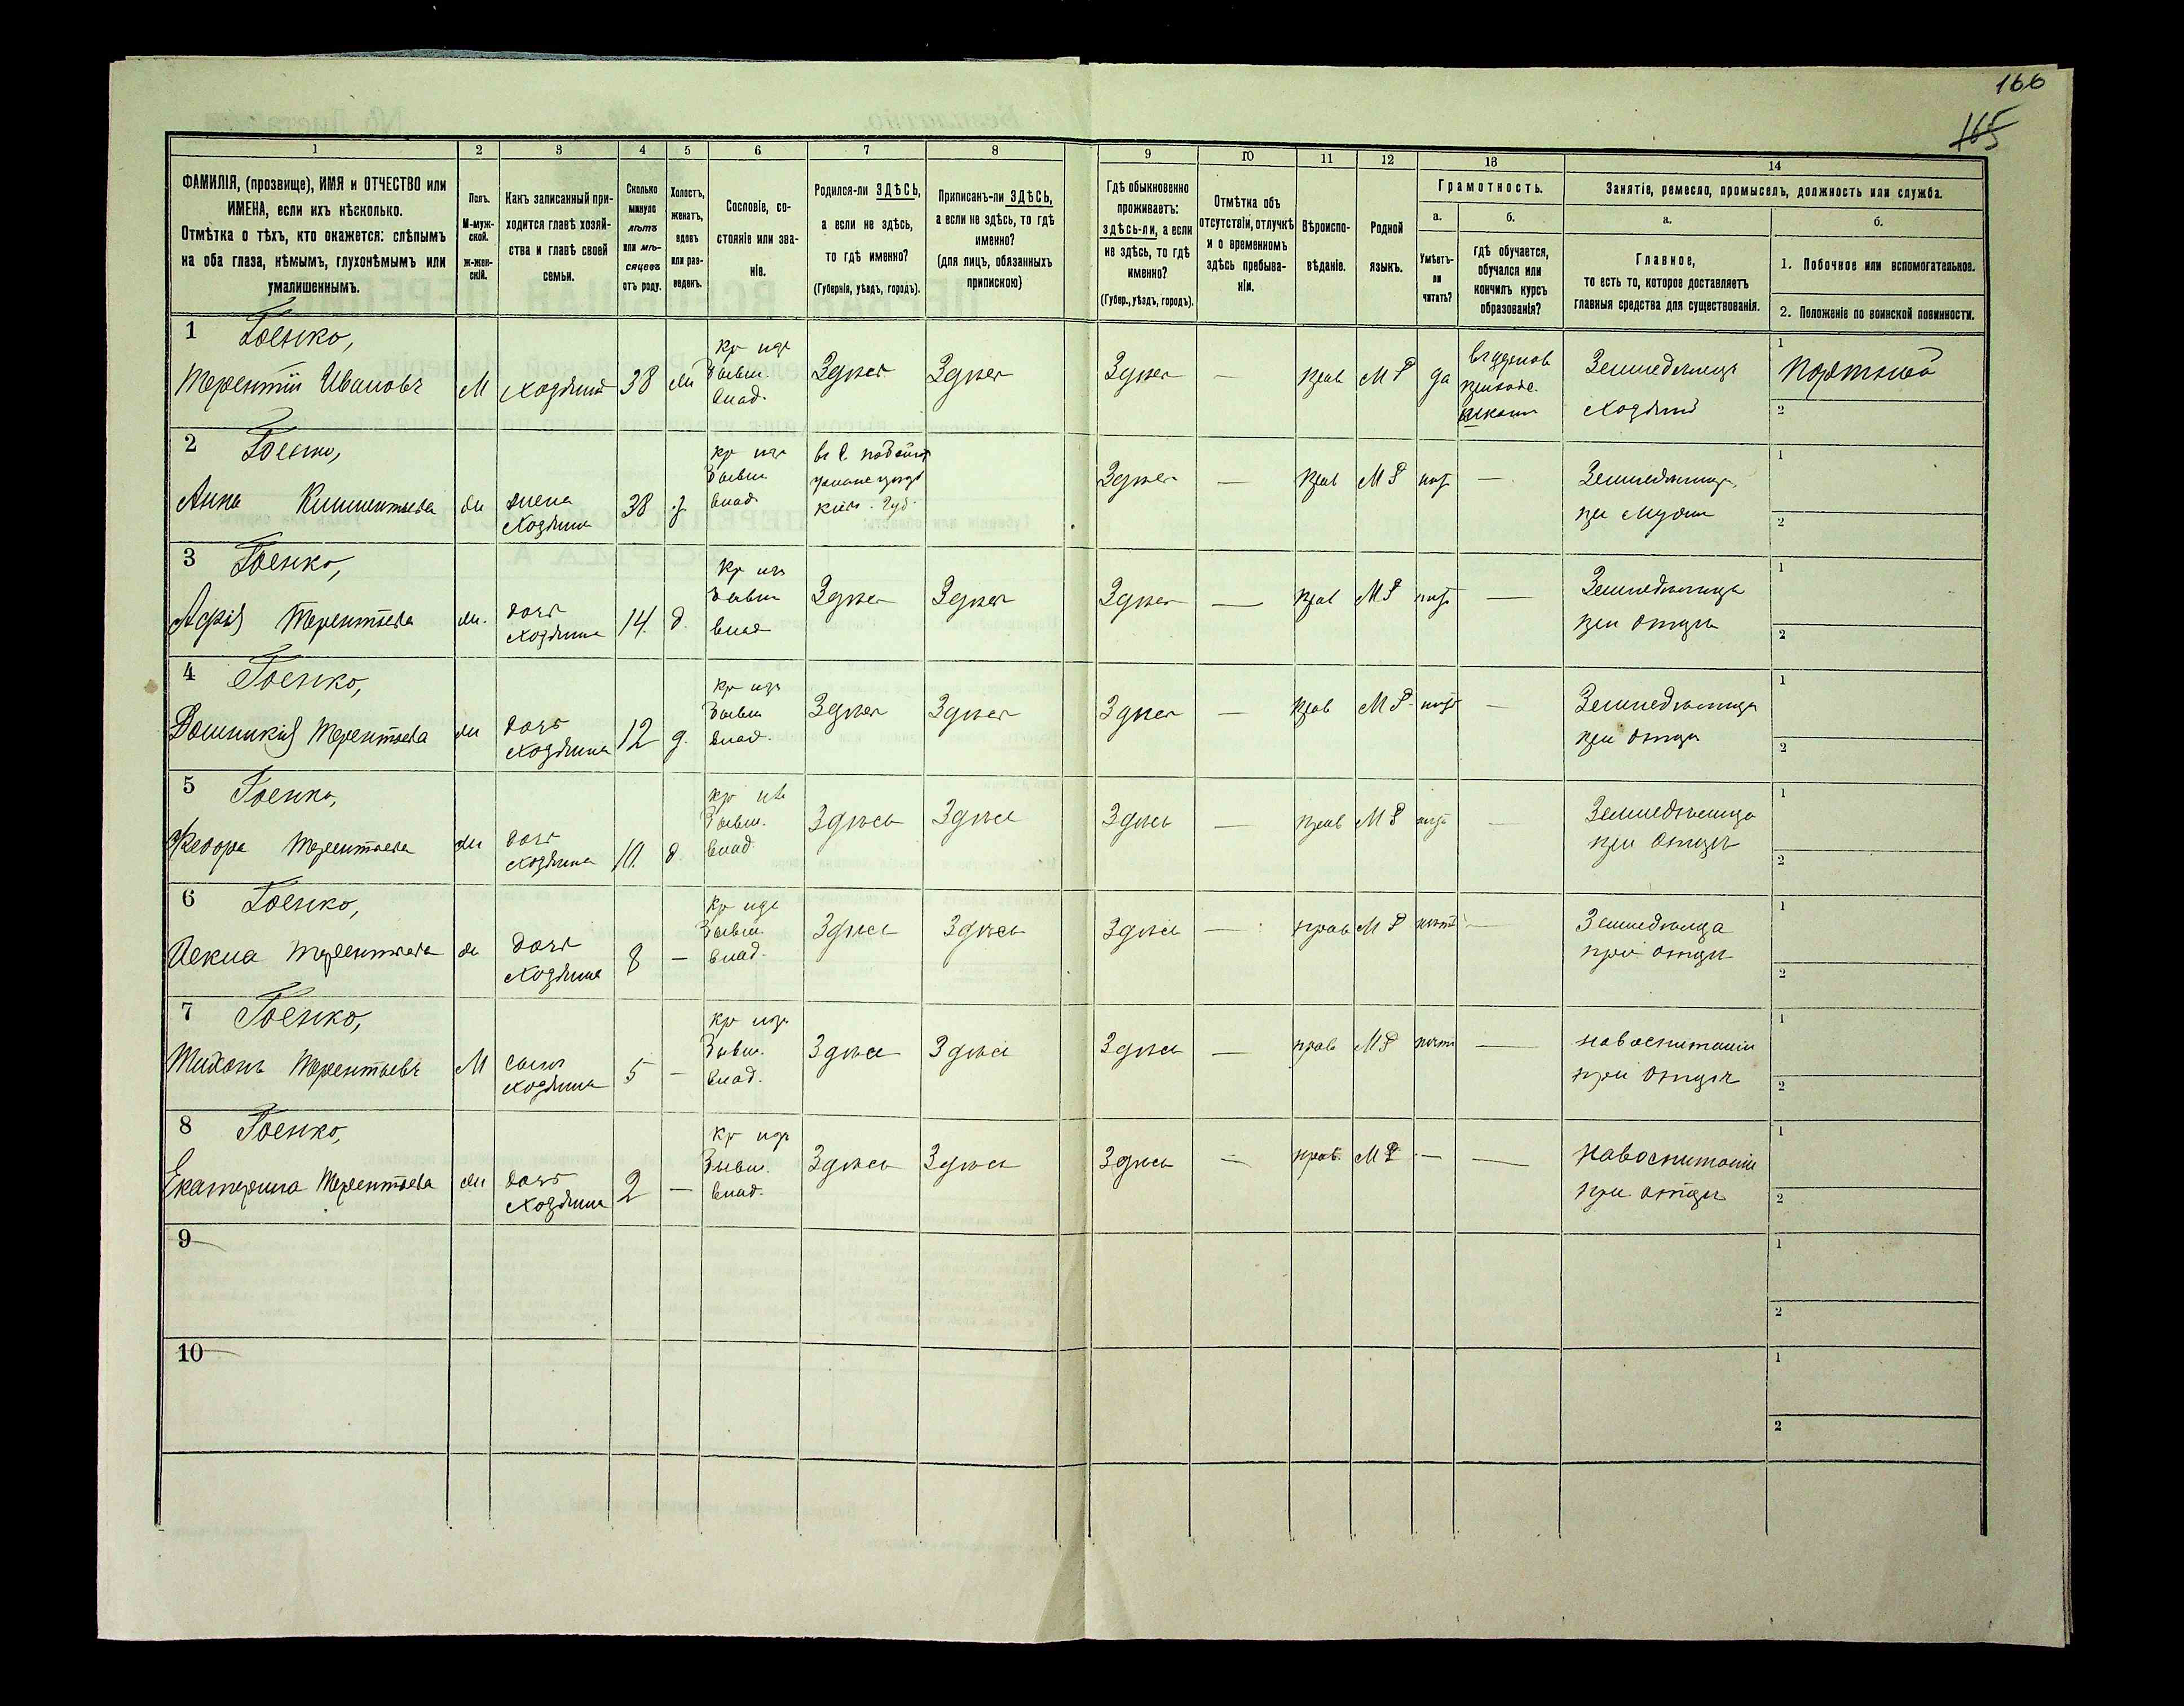 166
165
1
2
3
4
5
6
7
8
9
10
11
12
13
14
ФАМИЛІЯ, (прозвище), ИМЯ и ОТЧЕСТВО или
ИМЕНА, если ихъ нѣсколько.
Отмѣтка о тѣхъ, кто окажется: слѣпымъ
на оба глаза, нѣмымъ, глухонѣмымъ или
умалишеннымъ.
Полъ.
М-муж-
ской.
ж-жен-
скій.
Какъ записанный при-
ходится главѣ хозяй-
ства и главѣ своей
семьи.
Сколько
минуло
лѣтъ
или мѣ-
сяцевъ
отъ роду.
Холостъ,
женатъ,
вдовъ
или раз-
веденъ.
Сословіе, со-
стояніе или зва-
ніе.
Родился-ли ЗДѢСЬ,
а если не здѣсь,
то гдѣ именно?
(Губернія, уѣздъ, городъ).
Приписанъ-ли ЗДѢСЬ,
а если не здѣсь, то гдѣ
именно?
(для лицъ, обязанныхъ
припискою)
Гдѣ обыкновенно
проживаетъ:
здѣсь-ли, а если
не здѣсь, то гдѣ
именно?
(Губер., уѣздъ, городъ).
Отмѣтка объ
отсутствіи, отлучкѣ
и о временномъ
здѣсь пребыва-
ніи.
Вѣроиспо-
вѣданіе.
Родной
языкъ.
Грамотность.
а.
Умѣетъ-
ли
читать?
б.
гдѣ обучается,
обучался или
кончилъ курсъ
образованія?
Занятіе, ремесло, промыселъ, должность или служба.
а.
Главное,
то есть то, которое доставляетъ
главныя средства для существованія.
б.
1. Побочное или вспомогательное.
2. Положеніе по воинской повинности.
1 Гоенко,
Терентій Ивановъ
М
хозяинъ
38
ж
кр изъ
бывш.
влад.
Здѣсь
Здѣсь
Здѣсь
—
прав
М Р
да
школи
Земледѣлецъ
хозяинъ
1
Портной
2
2 Гоенко,
Анна
ж
жена
хозяина
38
з.
кр изъ
бывш
влад
уманск уѣзд
кіев. губ.
Здѣсь
—
прав
М Р
нѣт
—
Земледѣлица
при мужѣ
1
2
3 Гоенко,
Терентьева
ж.
дочь
хозяина
14.
д.
кр изъ
бывш
влад
Здѣсь
Здѣсь
Здѣсь
—
прав
М Р
нѣт
—
Земледѣлица
при отцѣ
1
2
4 Гоенко,
Домникія Терентьева
ж
дочь
хозяина
12
д.
кр изъ
бывш
влад.
Здѣсь
Здѣсь
Здѣсь
—
прав
М Р
нѣт
—
Земледѣлица
при отцѣ
1
2
5 Гоенко,
Федора Терентьева
ж
дочь
хозяина
10.
д
кр изъ
бывш.
влад
Здѣсь
Здѣсь
Здѣсь
—
прав
М Р
нѣт
—
Земледѣлица
при отцѣ
1
2
6 Гоенко,
Терентьева
ж
дочь
хозяина
8
—
кр изъ
бывш.
влад.
Здѣсь
Здѣсь
Здѣсь
—
прав
М Р
нѣтъ
—
Земледѣлица
при отцѣ
1
2
7 Гоенко,
Тихонъ Терентьевъ
М
сынъ
хозяина
5
—
кр изъ
бывш.
влад.
Здѣсь
Здѣсь
Здѣсь
—
прав
М Р
нѣтъ
—
на воспитаніи
при отцѣ
1
2
8 Гоенко,
Екатерина Терентьева
ж
дочь
хозяина
2
—
кр изъ
бывш.
влад.
Здѣсь
Здѣсь
Здѣсь
—
прав.
М Р
—
—
на воспитаніи
при отцѣ
1
2
9
1
2
10
1
2